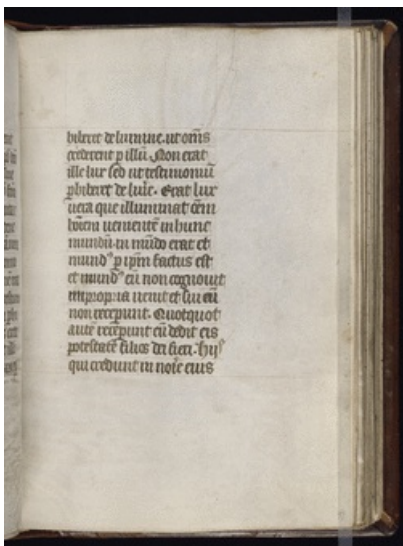 hiberet de lumine. ut om̅s
crederent p illu̅. Non erat
ille lux sed ut testimoniu̅
phiberet de lu̅ie. Erat lux
uera que illuminat o̅em
ho̅iem ueniente̅ in hunc
mundu̅. in mu̅do erat et
mundꝰ p ip̅m factus est
et mundꝰ eu̅ non cognouit
in propria uenit et sui eu̅
non receperunt. Quotquot
aute̅ receperunt eu̅ dedit eis
potestate̅ filios dei fieri. hijs
qui credunt in no̅ie eius